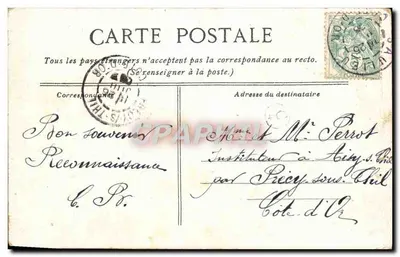 CARTE POSTALE
Tous les pays étrangers n'acceptent pas la correspondance au recto.
(Se renseigner à la poste.)
Correspondance
Adresse du destinataire
Bon souvenir
Reconnaissance
C. Pr.
Mme et Mr Perrot
Instituteur à Aisy-s.
par Précy-sous-Thil
Côte-d'Or